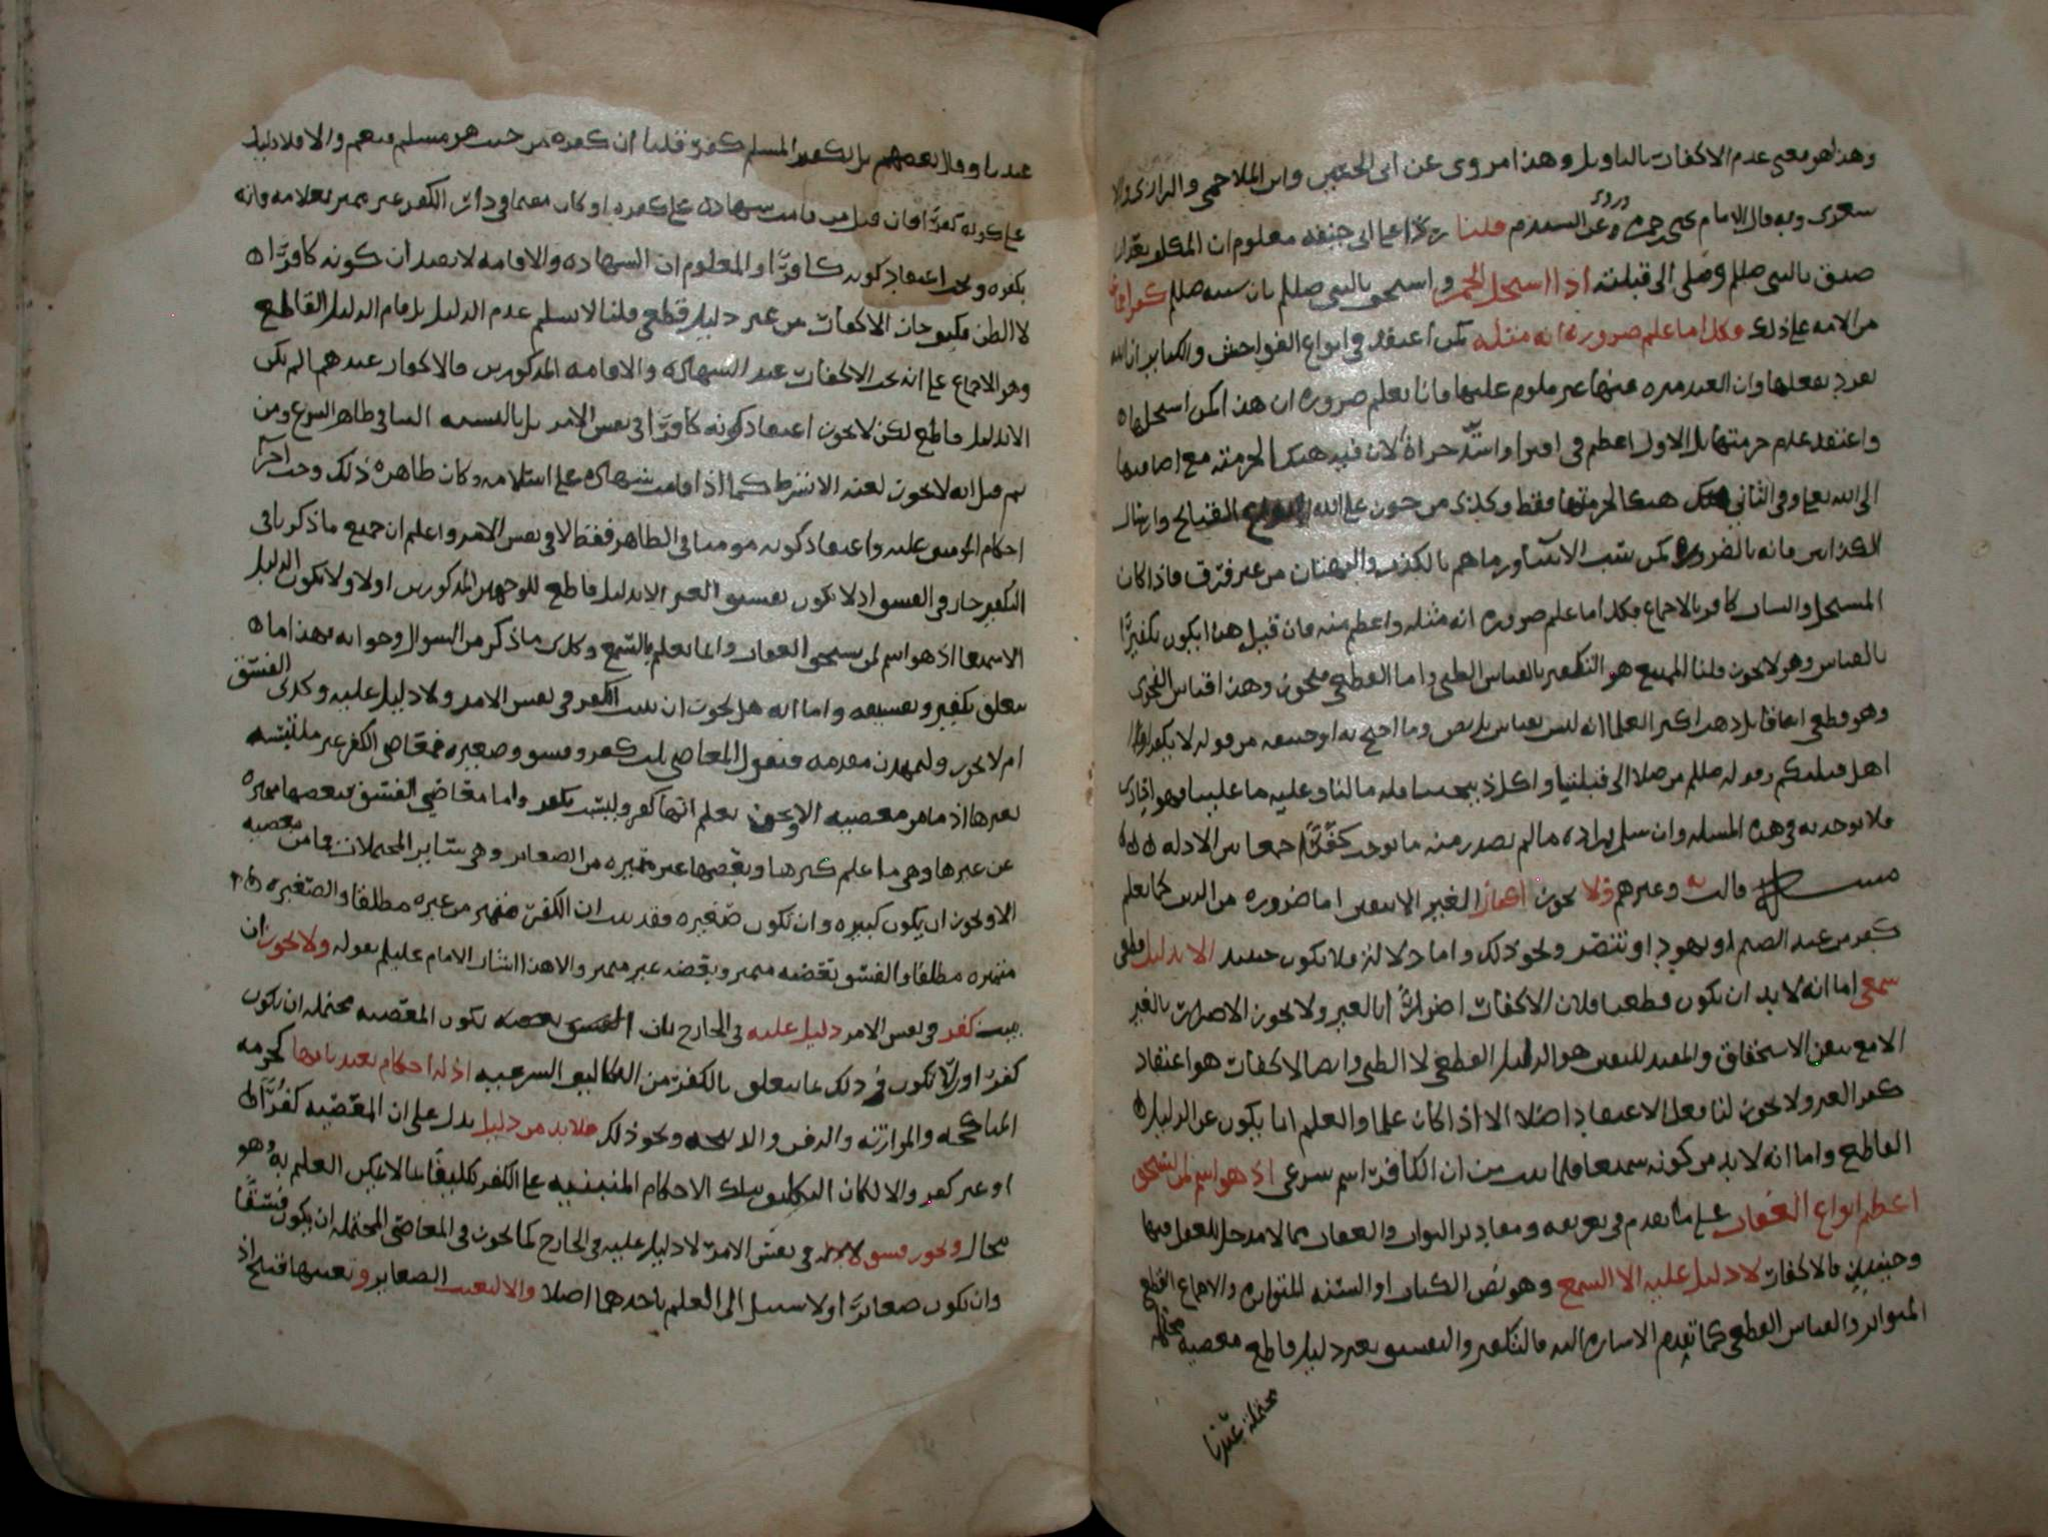 وهذا هو معنى عدم الاكفار بالتاويل وهذا مروي عن ابي الحسين وابن الملاحمي والرازي والا
شعري وبه قال الامام يحيى وروي عن السيد م قلنا ردا على ابي حنيفة معلوم ان المكلف يقدر ان
صدق بالنبي صللم وصلى الى قبلته اذا استحل الخمر واستخف بالنبي صللم بان سبه صللم كفر اجماعا
من الامة على ذلك فكذا ما علم ضرورة انه مثله كمن اعتقد في انواع الفواحش والكباير ان الله
يريد بفعلها وان العبد غير ملوم عليها فانا نعلم ضرورة ان هذا كمن استحلها
واعتقد عدم حرمتها بل الاول اعظم في افترا واشد جراة لان فيه هتكا لحرمته مع اضافتها
الى الله تعالى وفي الثاني هتكا لحرمتها فقط وكذى من جوز على الله القبايح وارسال
الكذابين فانه بالضرورة كمن سب الانبيا ورماهم بالكذب والبهتان من غير فرق فاذا كان
المستحل والساب كافر بالاجماع فكذا ما علم ضرورة انه مثله واعظم منه فان قيل هذا يكون تكفيرًا
بالقياس وهو لا يجوز قلنا الممتنع هو التكفير بالقياس الظني واما القطعي فيجوز وهذا قياس الفحوى
وهو قطعي اتفاقا بل ذهب اكثر العلما انه ليس بقياس بل نص وما احتج به ابو حنيفة من قوله لا تكفروا
اهل قبلتكم وقوله صللم من صلا الى قبلتنا واكل ذبيحتنا فله ما لنا وعليه ما علينا فهو احادي
فلا يوخذ به في هذه المسلة وان سلم فمراده ما لم يصدر منه ما يوجب كفرًا جمعا بين الادلة
مسئلة قالت يه وغيرهم ولا يجوز اكفار الغير الا بيقين اما ضرورة من الدين كما يعلم
كفر من عبد الصنم او يهود او تنصر ونحو ذلك واما دلالة فلا يكون حينئذ الا بدليل قطعي
سمعي اما انه لا بد ان يكون قطعيا فلان الاكفار اضرارًا بالغير ولا يجوز الاضرار بالغير
الا مع تيقن الاستحقاق والمفيد لليقين هو الدليل القطعي لا الظني وايضا الاكفار هو اعتقاد
كفر الغير ولا يجوز لنا فعل الاعتقاد اصلا الا اذا كان علما والعلم انما يكون عن الدليل
القاطع واما انه لا بد من كونه سمعيا فلما ثبت من ان الكافر اسم شرعي اذ هو اسم لمن استحق
اعظم انواع العقاب على ما تقدم في تعريفه ومقادير الثواب والعقاب مما لا مدخل للعقل فيها
وحينئذ فالاكفار لا دليل عليه الا السمع وهو نص الكتاب او السنة المتواترة والاجماع القطعي
المتواتر والقياس القطعي كما تقدم الاشارة اليه فالتكفير والتفسيق بغير دليل قاطع معصية محتملة
محتملة عندنا
عندنا وقال بعضهم بل تكفير المسلم كفر قلنا ان كفره من حيث هو مسلم فنعم والا فلا دليل
على كونه كفرًا فان قيل من قامت شهادة على كفره او كان مقيما في دار الكفر غير مميز بعلامة فانه
يكفره ويجب اعتقاد كونه كافرًا والمعلوم ان الشهادة والاقامة لا يفيدان كونه كافرًا
الا الظن فكيف جاز الاكفار من غير دليل قطعي قلنا لا نسلم عدم الدليل بل قام الدليل القاطع
وهو الاجماع على انه يجب الاكفار عند الشهادة والاقامة المذكورين فالاكفار عندهما لم يكن
الا بدليل قاطع لكن لا يجوز اعتقاد كونه كافرًا في نفس الامر بل بالنسبة الينا في ظاهر الشرع ومن
ثم قيل انه لا يجوز لعنه الا بشرط كما اذا قامت شهادة على اسلامه وكان ظاهره ذلك وجب اجرآ
احكام المومنين عليه واعتقاد كونه مومنا في الظاهر فقط لا في نفس الامر واعلم ان جميع ما ذكرنا في
التكفير جار في الفسق اذ لا يكون تفسيق الغير الا بدليل قاطع للوجهين المذكورين اولا ولا يكون الدليل
الا سمعيا اذ هو اسم لمن يستحق العقاب وانما يعلم بالسمع وكذى ما ذكر من السوال وجوابه فهذا ما
يتعلق بتكفير وتفسيقه واما انه هل يجوز ان يثبت الكفر في نفس الامر ولا دليل عليه وكذى الفسق
ام لا يجوز ولنمهد مقدمة فنقول المعاصي ثلث كفر وفسق وصغيرة فمعاصي الكفر غير ملتبسة
بغيرها اذ ما من معصية الا ويجوز نعلم انها كفر وليست بكفر واما معاصي الفسق فبعضها مميزة
عن غيرها وهي ما علم كبرها وبعضها غير متميزة من الصغاير وهي ساير المحتملات فما من معصية
الا ويجوز ان يكون كبيرة وان تكون صغيرة فقد ثبت ان الكفر متميز من غيره مطلقا والصغيرة
متميزة مطلقا والفسق بعضه متميز وبعضه غير متميز والى هذا اشار الامام عليلم بقوله ولا يجوز ان
يثبت كفر في نفس الامر دليل عليه في الخارج بان يكون المعصية محتملة ان يكون
كفرًا ولا يكون في ذلك ما يتعلق بالكفر من التكاليف الشرعية اذ له احكام تعبدنا بها كحرمة
المناكحة والموارثة والدفن والذبيحة ونحو ذلك فلا بد من دليل يدل على ان المعصية كفرًا
او غير كفر والا لكان التكليف بتلك الاحكام المنبنية على الكفر تكليفًا بما لا يمكن العلم به وهو
محال ويجوز فسق لا دليل في نفس الامر لا دليل عليه في الخارج كما يجوز في المعاصي المحتملة ان يكون فسقًا
وان يكون صغايرًا ولا سبيل الى العلم باحدهما اصلا والا لتعينت الصغاير وتعينها قبيح اذ